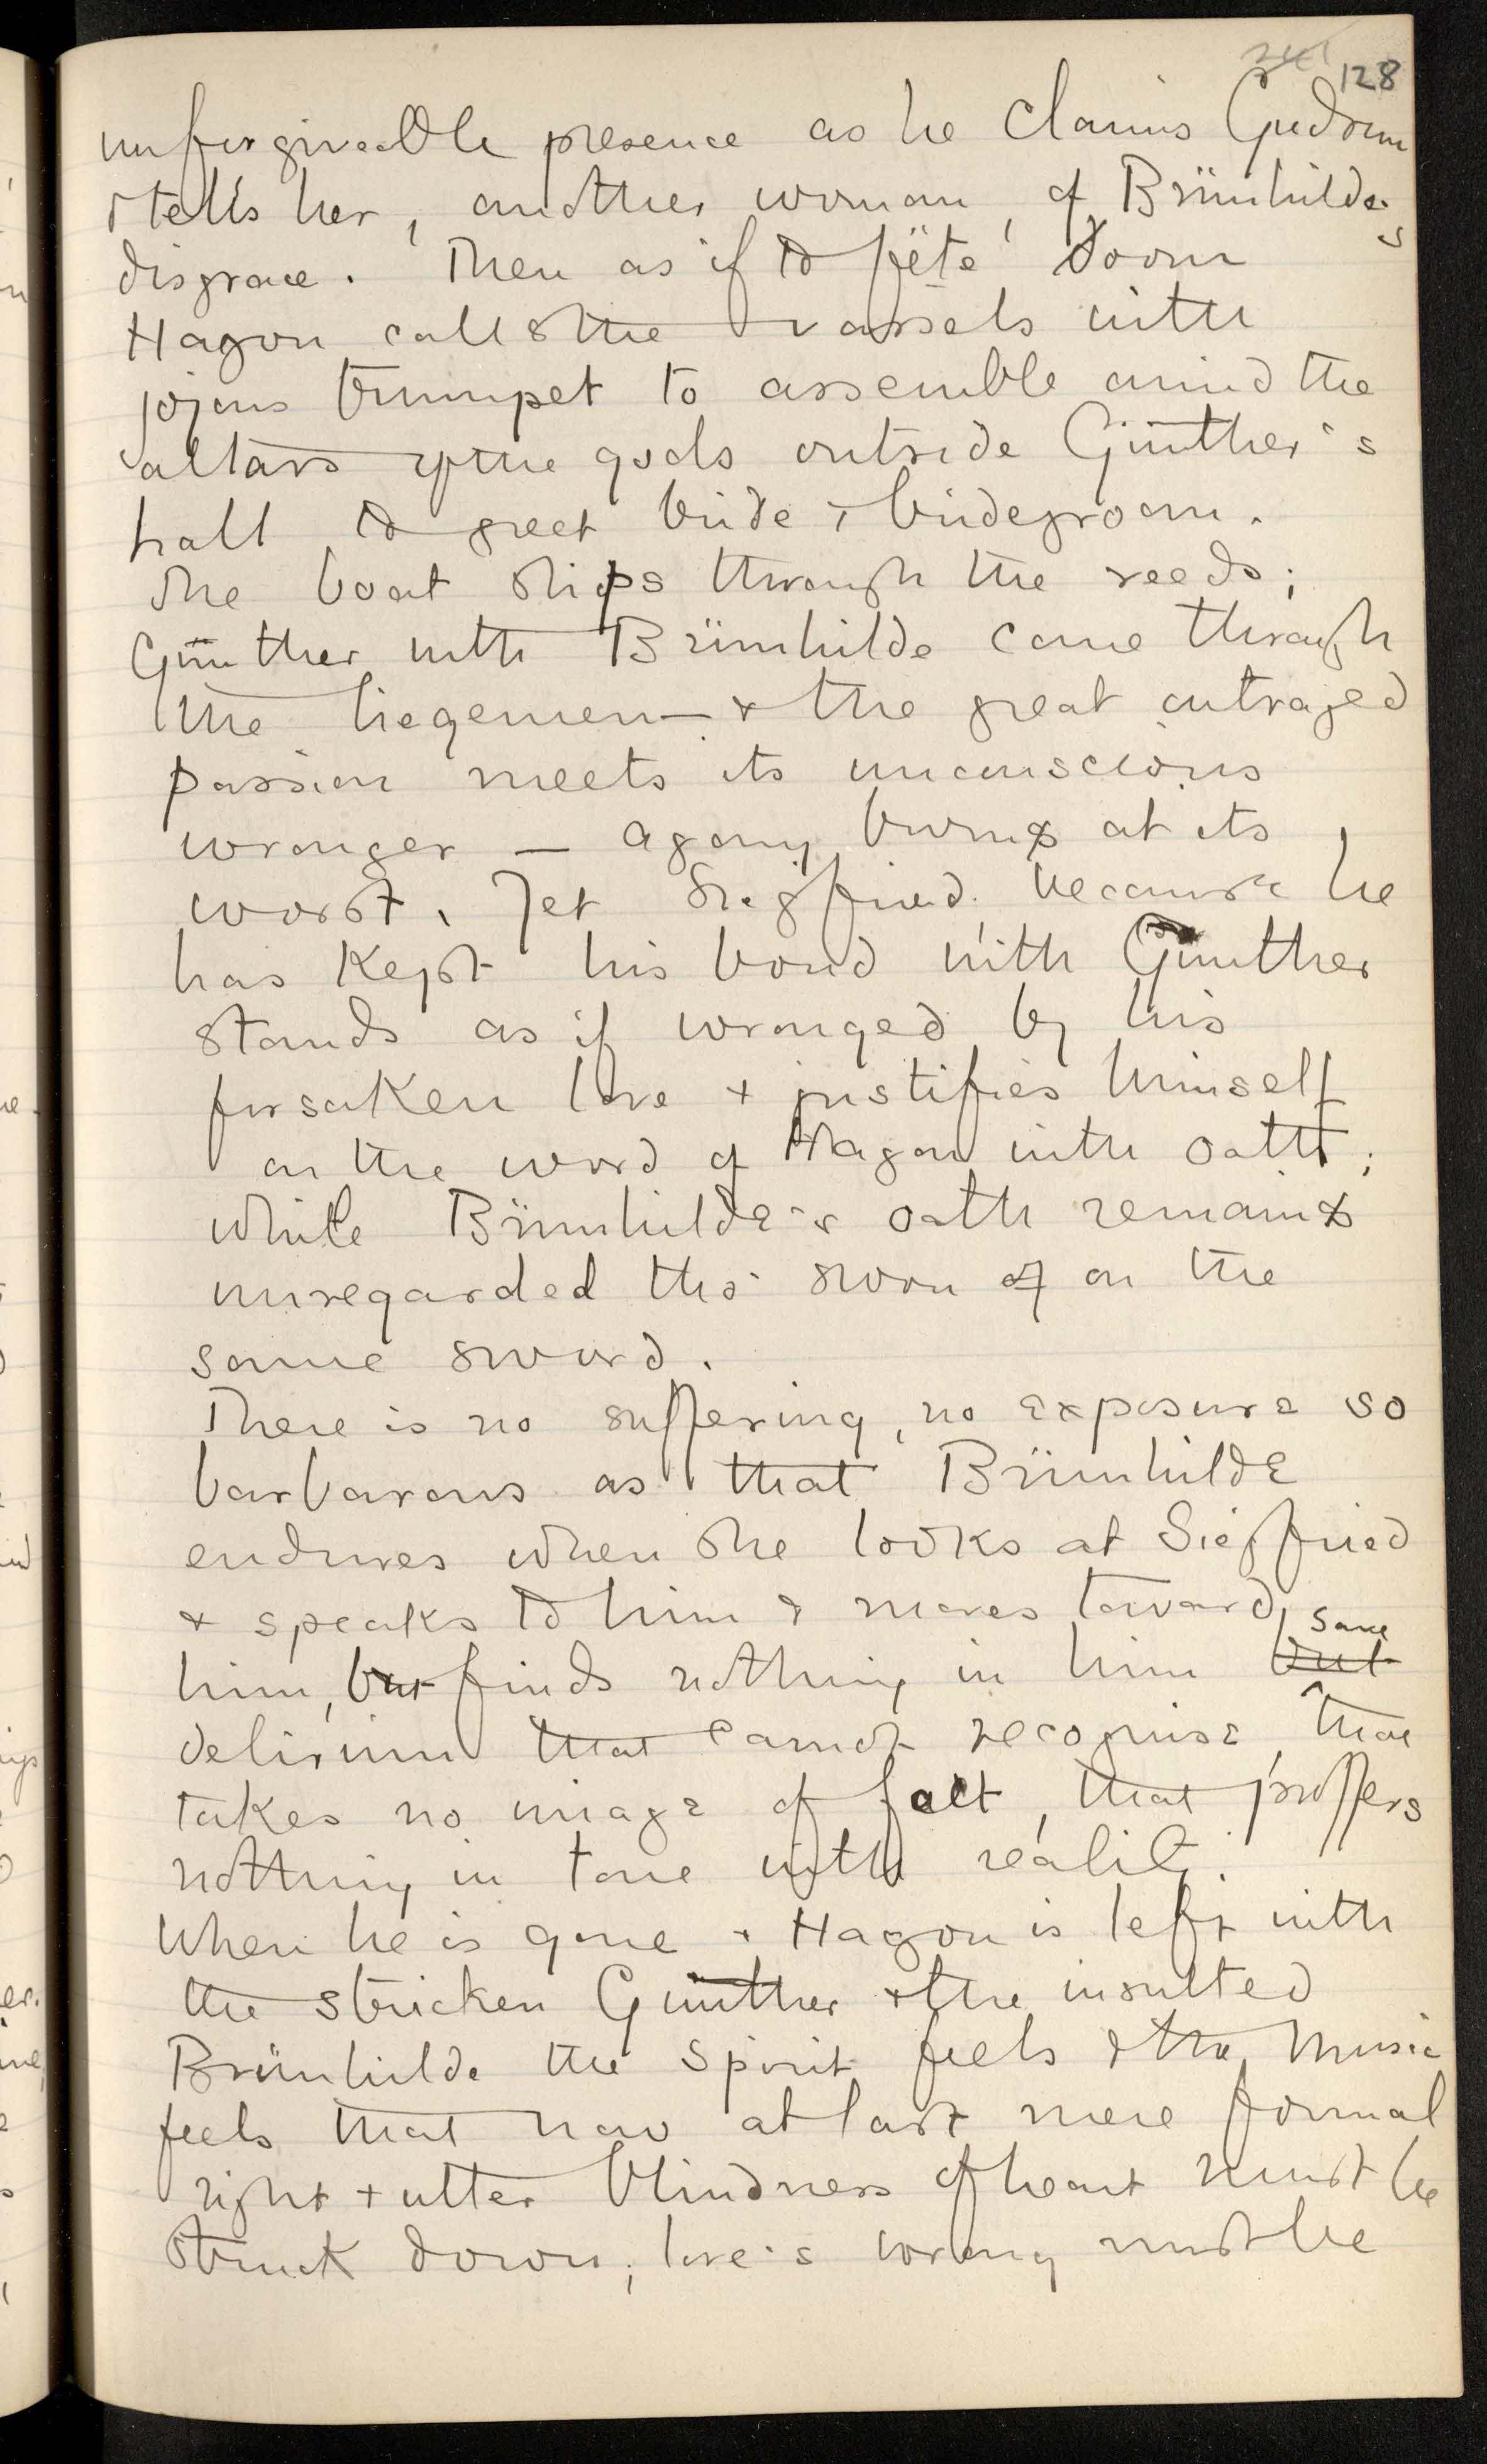 128
unforgiveable presence as he claims Gudrun
& tells her, another woman, of Brünhilde's
disgrace. Then as if to fête doom
Hagon calls the vassals with
joyous trumpet to assemble amid the
altars of the gods outside Günther's
hall to greet bride & bridegroom.
The boat slips through the reeds;
Günther with Brünhilde come through
the liegemen — & the great outraged
passion meets its unconscious
wronger — agony burns at its
worst. Yet Siegfried, because he
has kept his bond with Günther
stands as if wronged by his
forsaken love & justifies himself
on the word of Hagon with oath;
while Brünhilde's oath remains
unregarded tho' sworn on the
same sword.
There is no suffering, no exposure so
barbarous as that Brünhilde
endures when she looks at Siegfried
& speaks to him & moves toward
him, but finds nothing in him but save
delirium that cannot recognise, that
takes no image of fact, that proffers
nothing in tone with reality.
When he is gone & Hagon is left with
the stricken Günther & the insulted
Brünhilde the spirit feels & the music
feels that now at last mere formal
right & utter blindness of heart must be
struck down; love's wrong must be